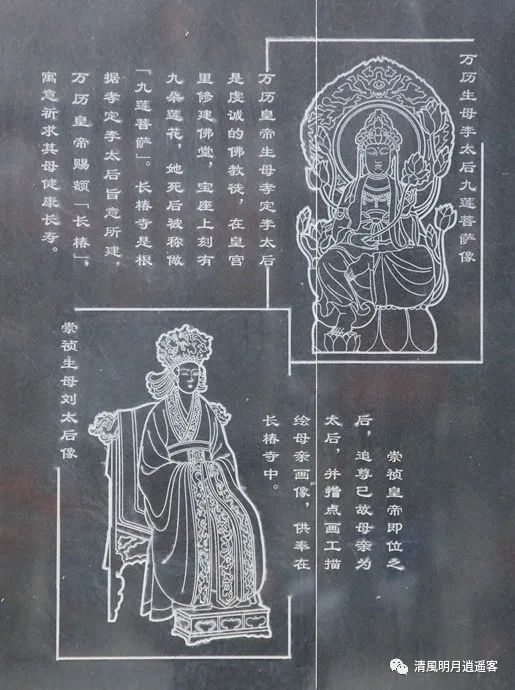 万历生母李太后九莲菩萨像
万历皇帝生母孝定李太后
是虔诚的佛教徒，在皇宫
里修建佛堂，宝座上刻有
九朵莲花，她死后被称做
「九莲菩萨」。长椿寺是根
据孝定李太后旨意所建，
万历皇帝赐额「长椿」，
寓意祈求其母健康长寿。
崇祯皇帝即位之
后，追尊已故母亲为
太后，并指点画工描
绘母亲画像，供奉在
长椿寺中。
崇祯生母刘太后像
清風明月逍遥客